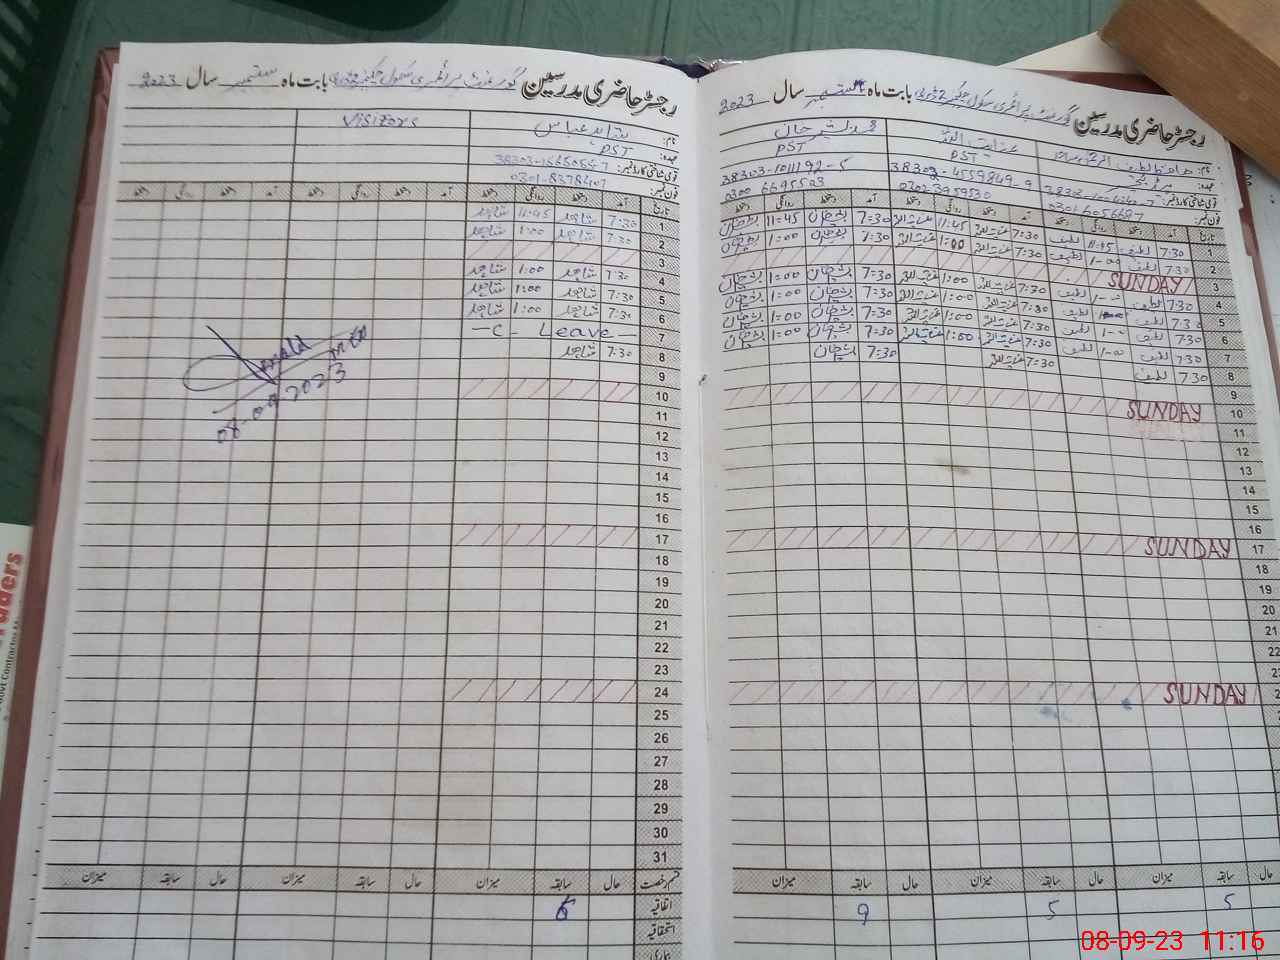 رجسٹر حاضری مدرسین گورنمنٹ پرائمری سکول بابت ماہ ستمبر سال 2023
نام:
عہدہ: PST PST
قومی شناختی کارڈ نمبر: 38303-4559849-9 38303-1011192-5
فون نمبر: 0301 6056687 0302-3959530 0300 6695503
تاریخ آمد دستخط روانگی دستخط آمد دستخط روانگی دستخط آمد دستخط روانگی دستخط
1 7:30 لطیف 11:45 لطیف 7:30 عنایت اللہ 11:45 عنایت اللہ 7:30 بشیر خان 11:45 بشیر خان
2 7:30 لطیف 1-00 لطیف 7:30 عنایت اللہ 1:00 عنایت اللہ 7:30 بشیر خان 1:00 بشیر خان
3 SUNDAY
4 7:30 لطیف 1-00 لطیف 7:30 عنایت اللہ 1:00 عنایت اللہ 7:30 بشیر خان 1:00 بشیر خان
5 7:30 لطیف لطیف 7:30 عنایت اللہ 1:00 عنایت اللہ 7:30 بشیر خان 1:00 بشیر خان
6 7:30 لطیف 1-00 لطیف 7:30 عنایت اللہ 1:00 عنایت اللہ 7:30 بشیر خان 1:00 بشیر خان
7 7:30 لطیف 1-00 لطیف 7:30 عنایت اللہ 1:00 عنایت اللہ 7:30 بشیر خان 1:00 بشیر خان
8 7:30 لطیف 7:30 عنایت اللہ 7:30 بشیر خان
9
10 SUNDAY
11
12
13
14
15
16
17 SUNDAY
18
19
20
21
22
SUNDAY
حال سابقہ میزان حال سابقہ میزان حال سابقہ میزان
5 5 9
رجسٹر حاضری مدرسین گورنمنٹ پرائمری سکول بابت ماہ ستمبر سال 2023
نام: شاہد عباس Visitors
عہدہ: PST
قومی شناختی کارڈ نمبر:
فون نمبر: 0301-8378407
تاریخ آمد دستخط روانگی دستخط آمد دستخط روانگی دستخط آمد دستخط روانگی دستخط
1 7:30 شاہد 11:45 شاہد
2 7:30 شاہد 1:00 شاہد
3
4 7:30 شاہد 1:00 شاہد
5 7:30 شاہد 1:00 شاہد
6 7:30 شاہد 1:00 شاہد
7 -C- Leave-
8 7:30 شاہد
9
10
11
12
13
14
15
16
17
18
19
20
21
22
23
24
25
26
27
28
29
30
31
08-09-2023
قسم رخصت حال سابقہ میزان حال سابقہ میزان حال سابقہ میزان
اتفاقیہ 6
استحقاقیہ
بیماری
Govt Contractor
08-09-23 11:16